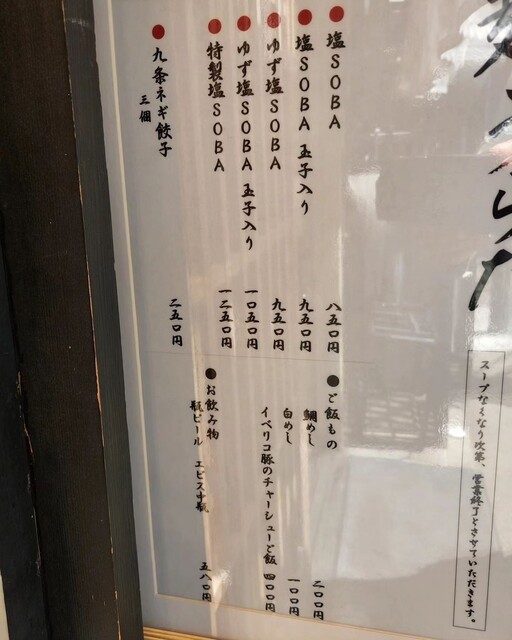 スープなくなり次第、営業終了とさせていただきます。
塩SOBA 八五〇円
塩SOBA 玉子入り 九五〇円
ゆず塩SOBA 九五〇円
ゆず塩SOBA 玉子入り 一〇五〇円
特製塩SOBA 一二五〇円
九条ネギ餃子 三個 二五〇円
ご飯もの
鯛めし 二〇〇円
白めし 一〇〇円
イベリコ豚のチャーシューご飯 四〇〇円
お飲み物
瓶ビール エビス中瓶 五八〇円